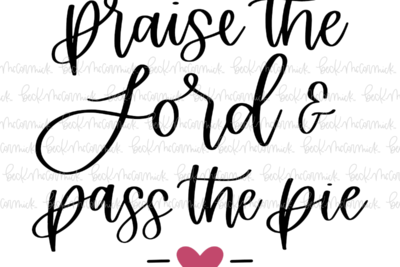 praise the
Lord &
pass the pie